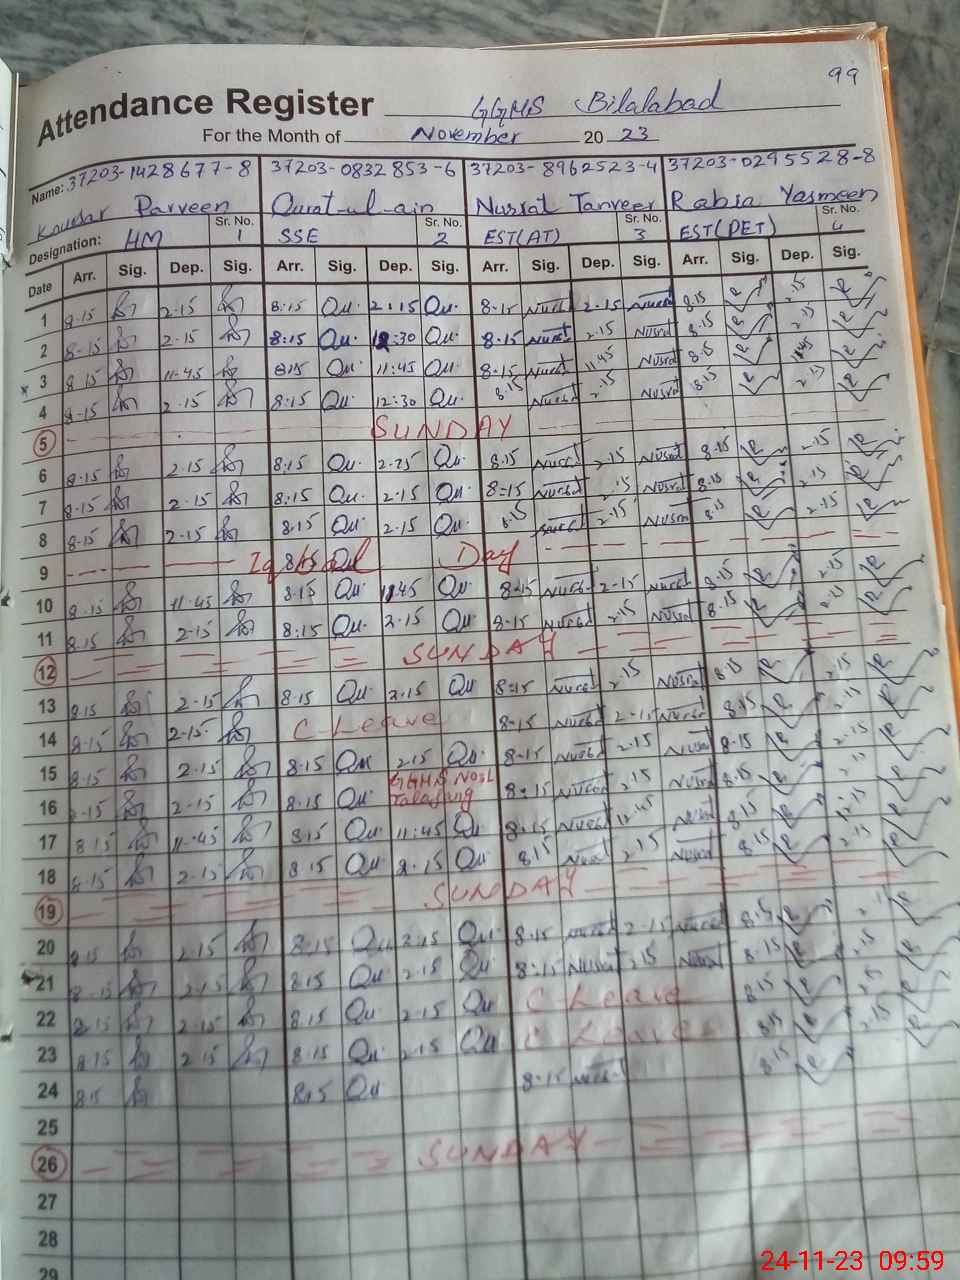 99
Attendance Register GGHS Bilalabad
For the Month of November 20 23
Name: 37203-1428677-8 37203-0832853-6 37203-8962523-4 37203-0295528-8
Kousar Parveen Qurat-ul-ain Nusrat Tanveer Rabia Yasmeen
Designation: HM Sr. No. 1 SSE Sr. No. 2 EST(AT) Sr. No. 3 EST(PET) Sr. No. 4
Date Arr. Sig. Dep. Sig. Arr. Sig. Dep. Sig. Arr. Sig. Dep. Sig. Arr. Sig. Dep. Sig.
1 8-15 2-15 8:15 Qu. 2:15 Qu. 8-15 Nusrat 2-15 Nusrat 8-15 2-15
2 8-15 2-15 8:15 Qu. 12:30 Qu. 8-15 Nusrat 2-15 Nusrat 8-15 2-15
3 8-15 11-45 8:15 Qu. 11:45 Qu. 8-15 Nusrat 11-45 Nusrat 8-15 11-45
4 8-15 2-15 8:15 Qu. 12:30 Qu. 8-15 Nusrat 2-15 Nusrat 8-15 2-15
5 SUNDAY
6 8-15 2-15 8:15 Qu. Qu. 8-15 Nusrat 2-15 Nusrat 8-15 2-15
7 8-15 2-15 8:15 Qu. 2-15 Qu. 8=15 Nusrat 2-15 Nusrat 8-15 2-15
8 8-15 2-15 8:15 Qu. 2-15 Qu. 8-15 Nusrat 2-15 Nusrat 8-15 2-15
9 Iqbal Day
10 8-15 11-45 8-15 Qu. 11:45 Qu. 8-15 Nusrat 2-15 Nusrat 8-15 2-15
11 8-15 2-15 8:15 Qu. 2-15 Qu. 8-15 Nusrat 2-15 Nusrat 8-15 2-15
12 SUNDAY
13 8-15 2-15 8-15 Qu. 2-15 Qu 8=15 Nusrat 2-15 Nusrat 8-15 2-15
14 8-15 2-15 C Leave 8-15 Nusrat 2-15 Nusrat 8-15 2-15
15 8-15 2-15 8-15 Qu 2-15 Qu. 8-15 Nusrat 2-15 Nusrat 8-15 2-15
16 2-15 8-15 Qu. GGHS No.1 Talagang 8-15 Nusrat 2-15 Nusrat 8-15 2-15
17 8-15 11-45 8-15 Qu 11:45 Qu 8-15 Nusrat 11-45 Nusrat 8-15
18 8-15 2-15 8-15 Qu 2-15 Qu 8-15 Nusrat 2-15 Nusrat 8-15 2-15
19 SUNDAY
20 8-15 2-15 8-15 Qu 2-15 Qu 8-15 Nusrat 2-15 Nusrat 8-15
21 8-15 2-15 8-15 Qu 2-15 Qu 8-15 Nusrat 2-15 Nusrat 8-15 2-15
22 8-15 2-15 8-15 Qu 2-15 Qu C Leave 8-15 2-15
23 8-15 2-15 8-15 Qu 2-15 Qu C Leave 8-15 2-15
24 8-15 8-15 Qu 8-15 Nusrat 8-15
25
26 SUNDAY
27
28
29
24-11-23 09:59